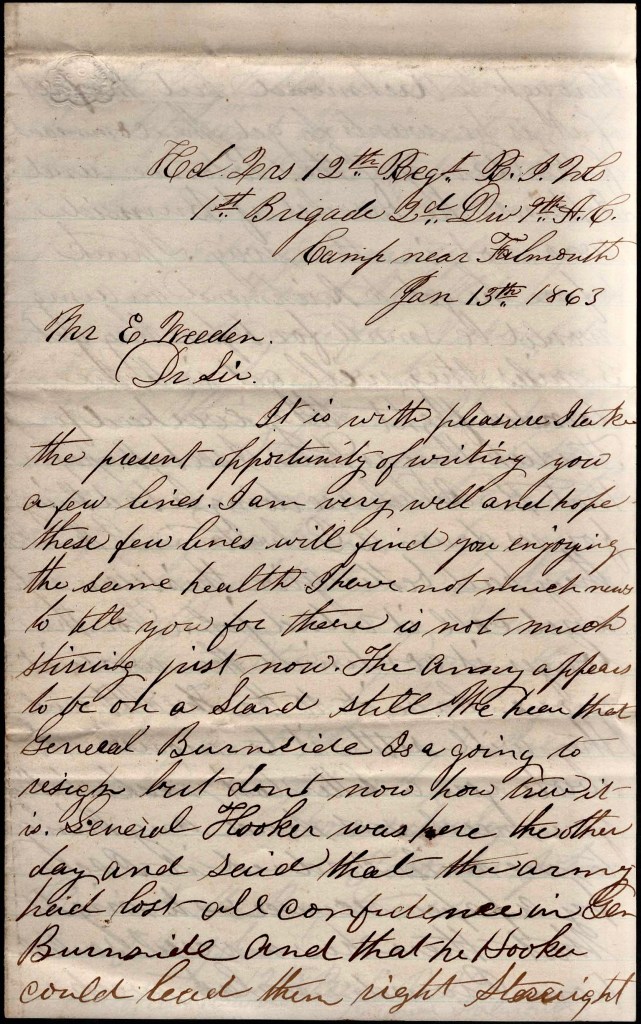 Hd Qrs 12th Regt R. I. Vols
1st Brigade 2d Div 9th A. C.
Camp near Falmouth
Jan 13th 1863
Mr E. Weeden.
Dr Sir.
It is with pleasure I take
the present opportunity of writing you
a few lines. I am very well and hope
these few lines will find you enjoying
the same health I have not much news
to tell you for there is not much
stirring just now. The army appears
to be on a Stand still We hear that
General Burnside Is a going to
resign but dont now how true it
is. General Hooker was here the other
day and said that the army
had lost all confidence in Gen
Burnside and that he Hooker
could lead them right Streight